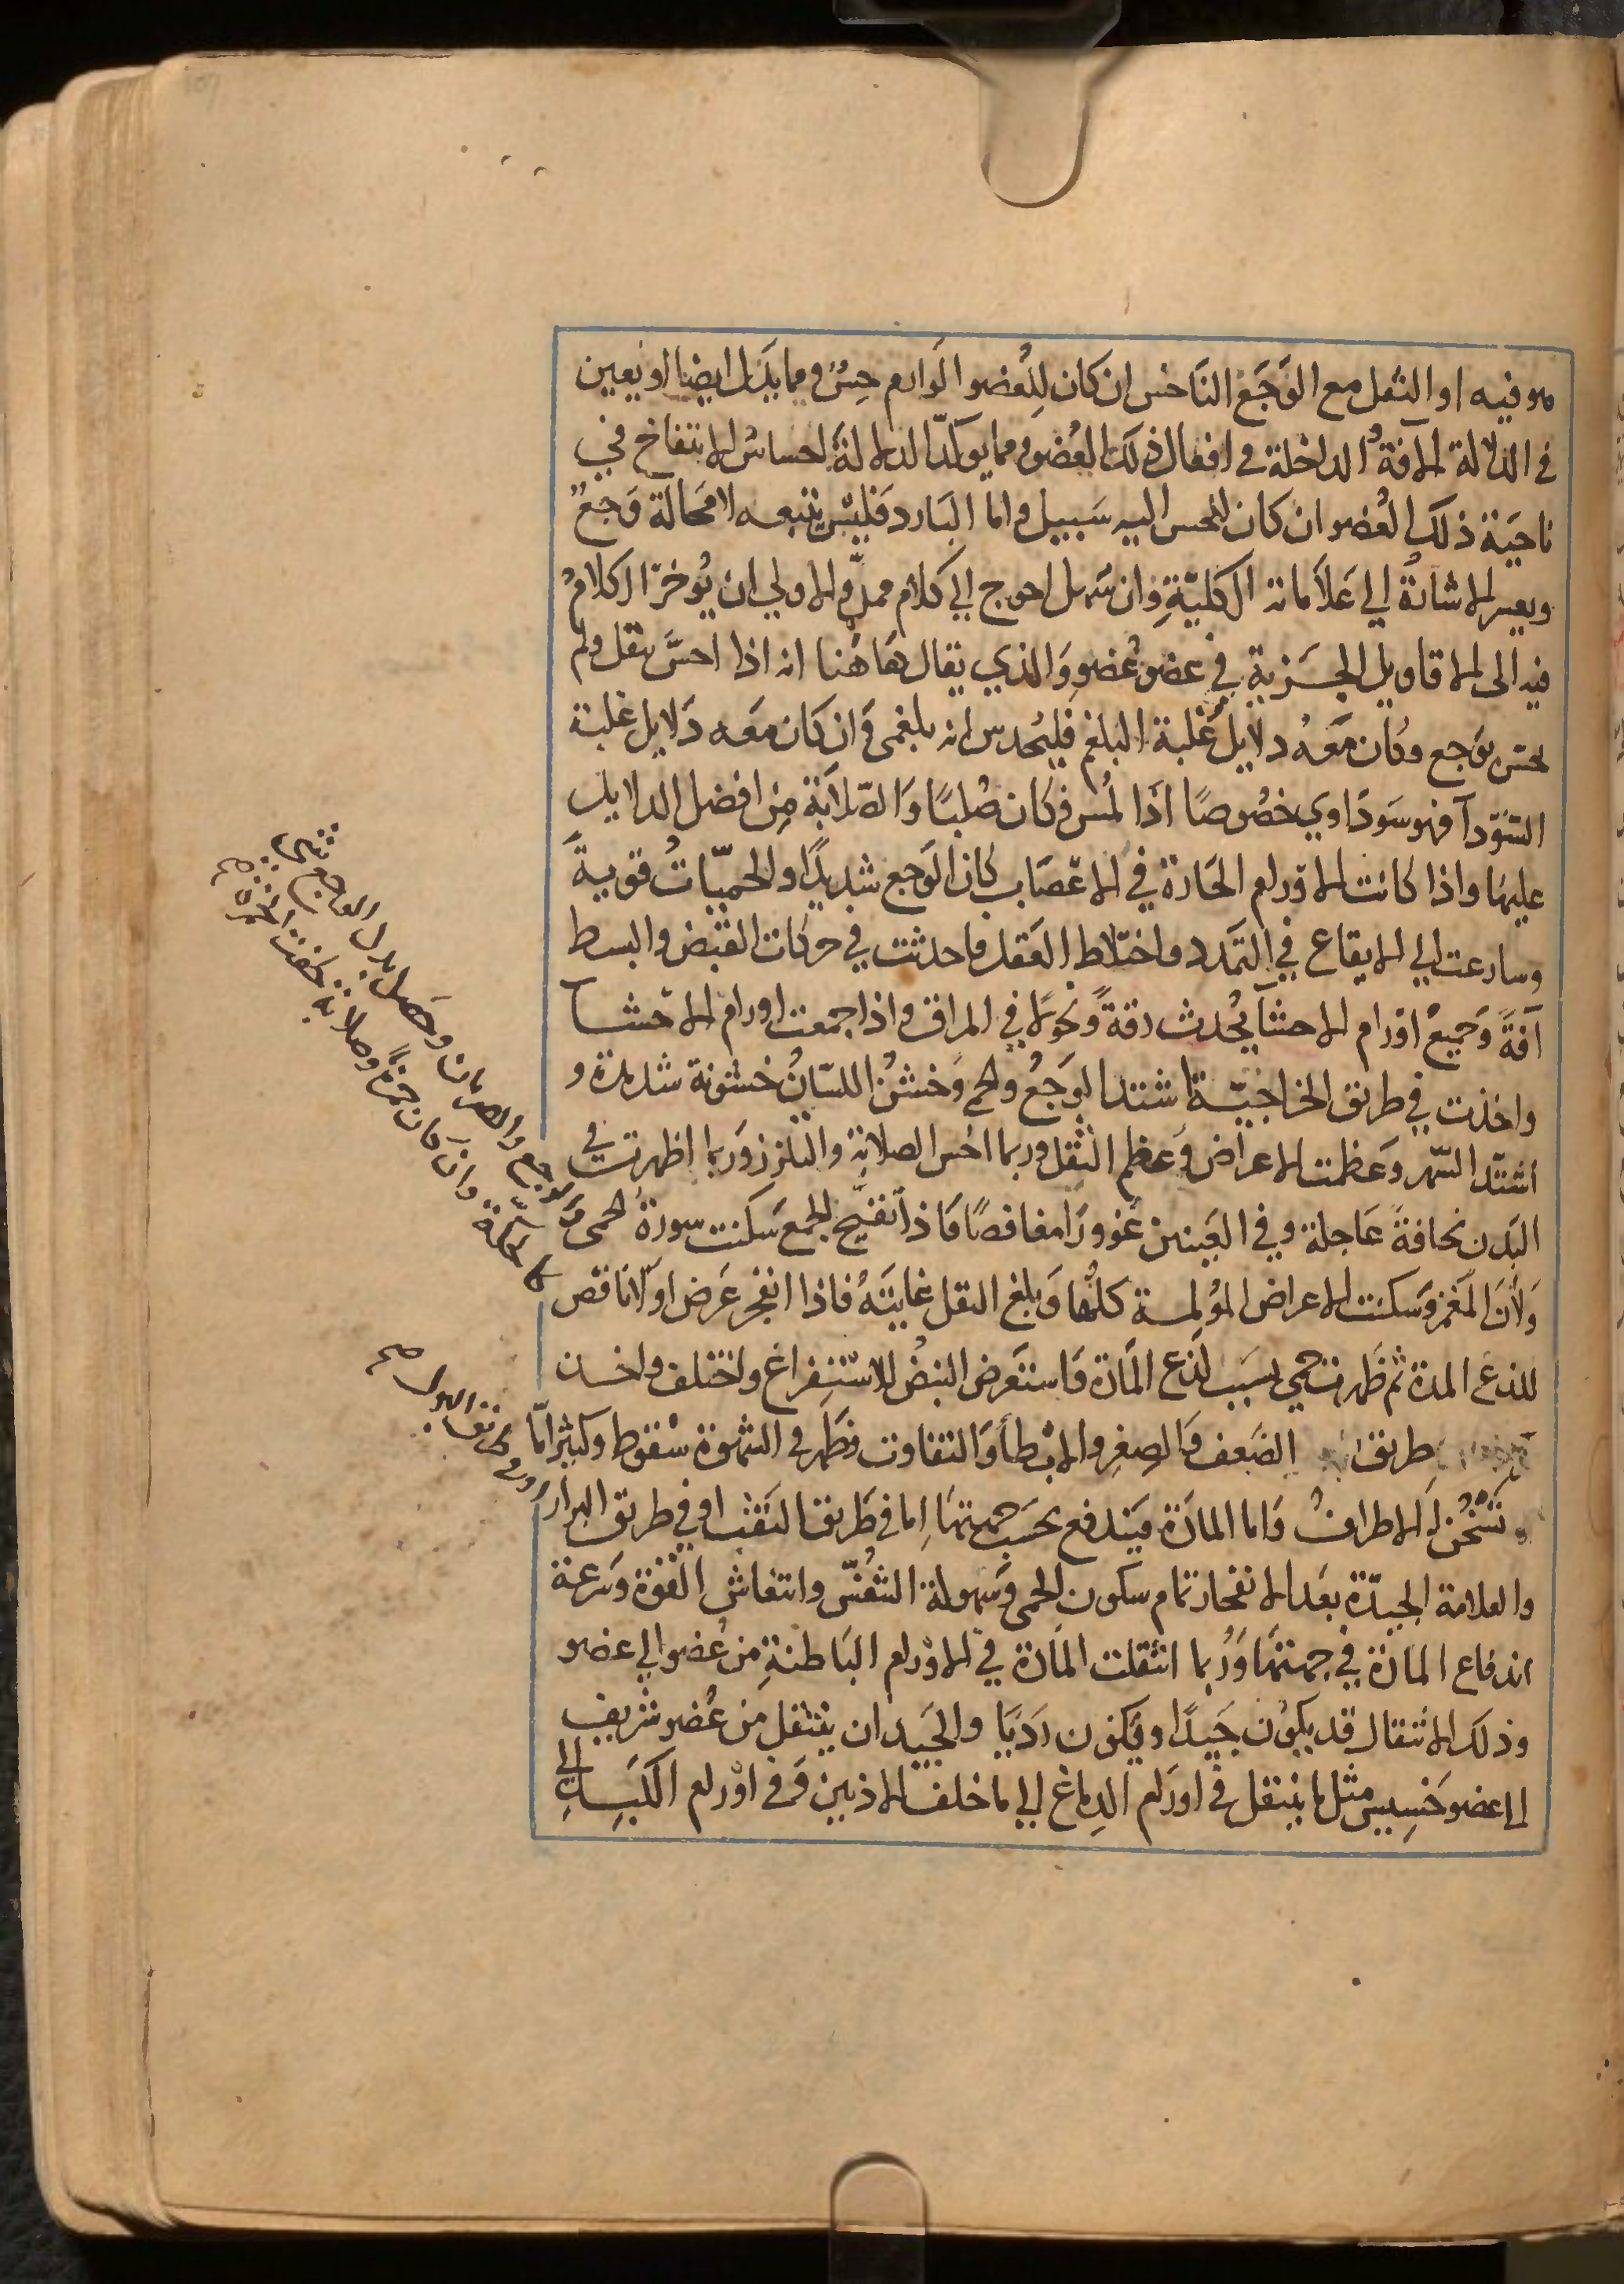 هو فيه او الثقل مع الوَجَع النَاخس ان كان لِلعُضو الوارم حِسٌ ومما يَدل ايضا او يعين
في الدلالة الافةُ الداخلة في افعال ذلك العُضو ومما يوكدّ الدلالةَ احساسُ الانتفاخ في
ناحيَة ذلك العُضو ان كان للحس اليه سَبيل واما البَارد فَليسَ يتبعه لا محَالة وَجعٌ
ويعسر الاشارةُ الي عَلاَماته الكليّةِ وان سَهل احوج الي كلام مملّ والاولي ان يُوخرّ الكلامُ
فيه الى الاقاويل الجُزية في عضو عُضوٍ وَالذي يقال هَاهُنا انه اذا احسَّ بثقل ولم
يحس بوَجع وكان مَعَهُ دلايل غَلبة البلغم فليُحدس انه بلغمى وَان كان مَعَه دَلايل غلبة
السَّودآ فهو سَودَاوي خصُوصًا اذَا لُمسَ فكان صُلبًا وَالصّلابَة مِن افضل الدلايل
عليها واذا كانت الاوَرام الحَارة في الاعصَاب كان الوَجع شديدًا والحميّاتُ قويةً
وسارعت الي الايقاع في التمَدد واختلاط العَقل واحدثت في حركات القبض والبسط
آفةً وَجميعُ اوْرام الاحشآ يُحدث رقةً ونحُولًا في المراق واذا جمعت اورام الاحشا
واخذت في طريق الخراجيّة اشتد الوَجعُ والحمي وَخشُن اللسَانُ خشونة شديدة و
اشتدّ السَهر وَعظمت الاعراض وَعظم الثِقل وربما احُس الصلابة والتلزز وَربما اظهرت في
البَدن نحافةً عَاجلة وفي العَينين غوورًا مغافصًا فاذا تقيّح الجمع سَكنت سورة الحمى وَالوجع والضربان وحصل بدل الوجع شيء كالحكة وان كان حمرة وصلابة خفت الحمرة
وَلاَنَ المَغمز وَسكنت الاعراض المؤلمة كلُّها وَبلغ الثقل غايتَهُ فاذا انفجر عَرض اوّلا نافض
للذعِ المدة ثم ظَهرت حمي بسَبب لذع المَادة وَاستعَرض النبضُ للاستفراغ واختلف واخذ
طريق الضَعف وَالصِغر والابطأ وَالتفاوت وَظهَر في الشهوة سقوط وكثيرًا مّا
تَسْخُن لَه الاطرافُ وَاما المادَة فيَندفع بحسَب جهتهَا اِما في طَريق النَفث او في طريق البول او في طريق البراز
والعلامة الجيّدة بَعد الانفجار تمام سكون الحمى وَسهولة التنفس وانتعاش القوة وَسُرعة
اندفاع المادة في جهتهَا وَرُبما انتقلت المَادة في الاوْرام البَاطنةِ من عُضو الي عضو
وذلك الانتقال قد يكون جَيدًا وقد يكون رَديًا والجَيد ان ينتقل من عُضو شريف
الى عضو خَسِيس مثل ما ينتقل في اورَام الدِماغ الي ما خلف الاذنين وَفي اوْرام الكَبدِ الي